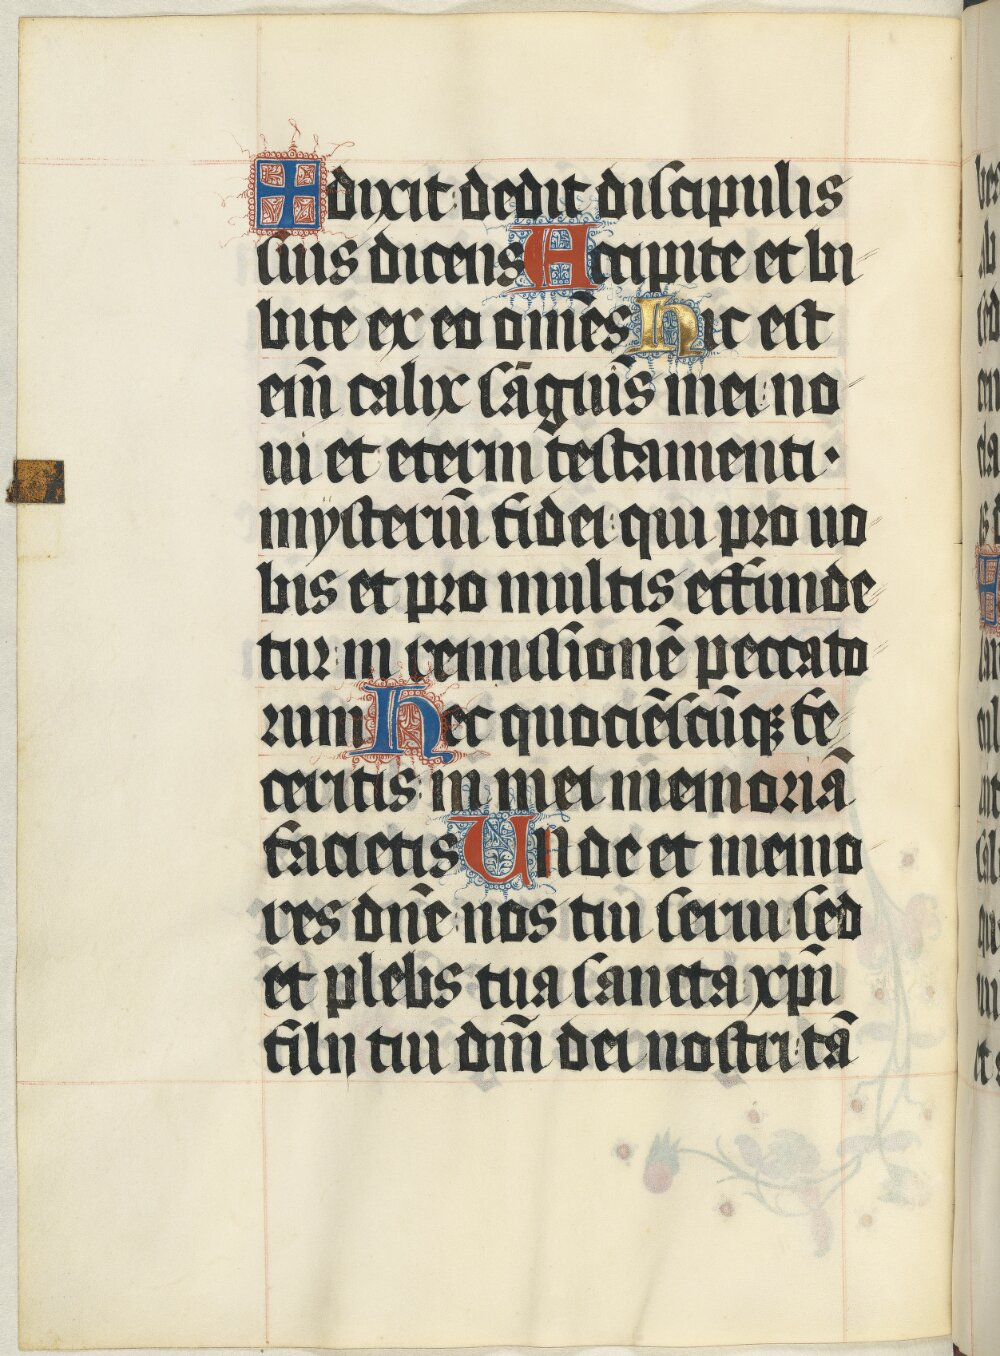 ✝ dixit: dedit discipulis
suis dicens Accipite et bi
bite ex eo om̄es Hic est
eni̅ calix sāguīs mei: no
ui et eterni testamenti·
mÿsteriū fidei: qui pro uo
bis et pro multis effunde
tur: in remissionē peccato
rum Hec quociēscūqꝫ fe
ceritis: in mei memoriā
facietis Unde et memo
res dn̄e: nos tui serui: sed
et plebs tua sancta xp̄i
filii tui dn̄i dei nostri: tā